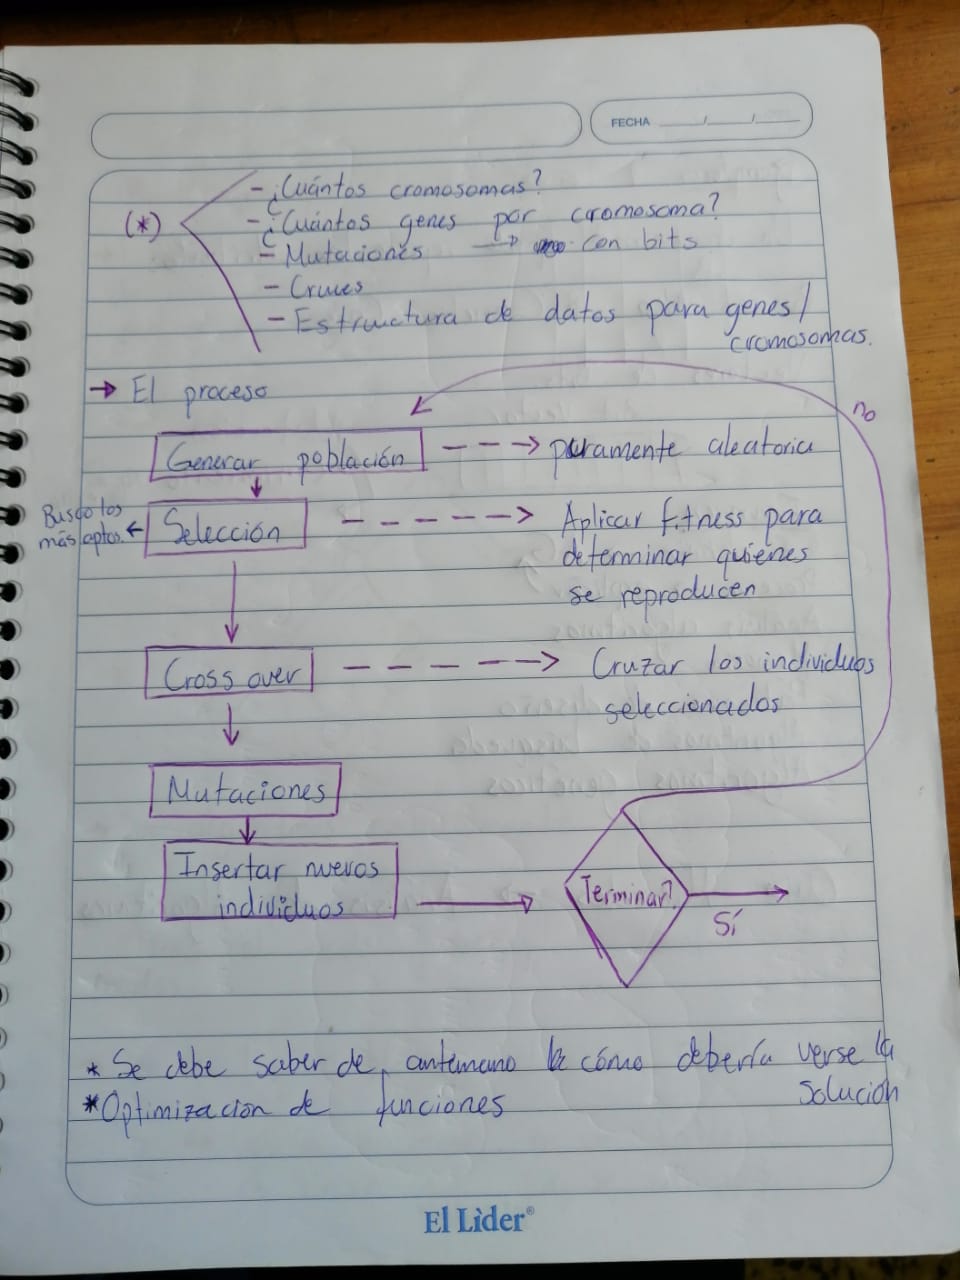 FECHA ___/___/___
(*)
- ¿Cuántos cromosomas?
- ¿Cuántos genes por cromosoma?
- Mutaciones → con bits
- Cruces
- Estructura de datos para genes/
cromosomas.
→ El proceso
no
Generar población - - -> puramente aleatoria
Busco los
más aptos. ← Selección - - - - -> Aplicar fitness para
determinar quiénes
se reproducen
Cross over - - - - -> Cruzar los individuos
seleccionados
Mutaciones
Insertar nuevos
individuos
Terminar?
Sí
* Se debe saber de antemano cómo debería verse la
solución
* Optimización de funciones
El Lìder®